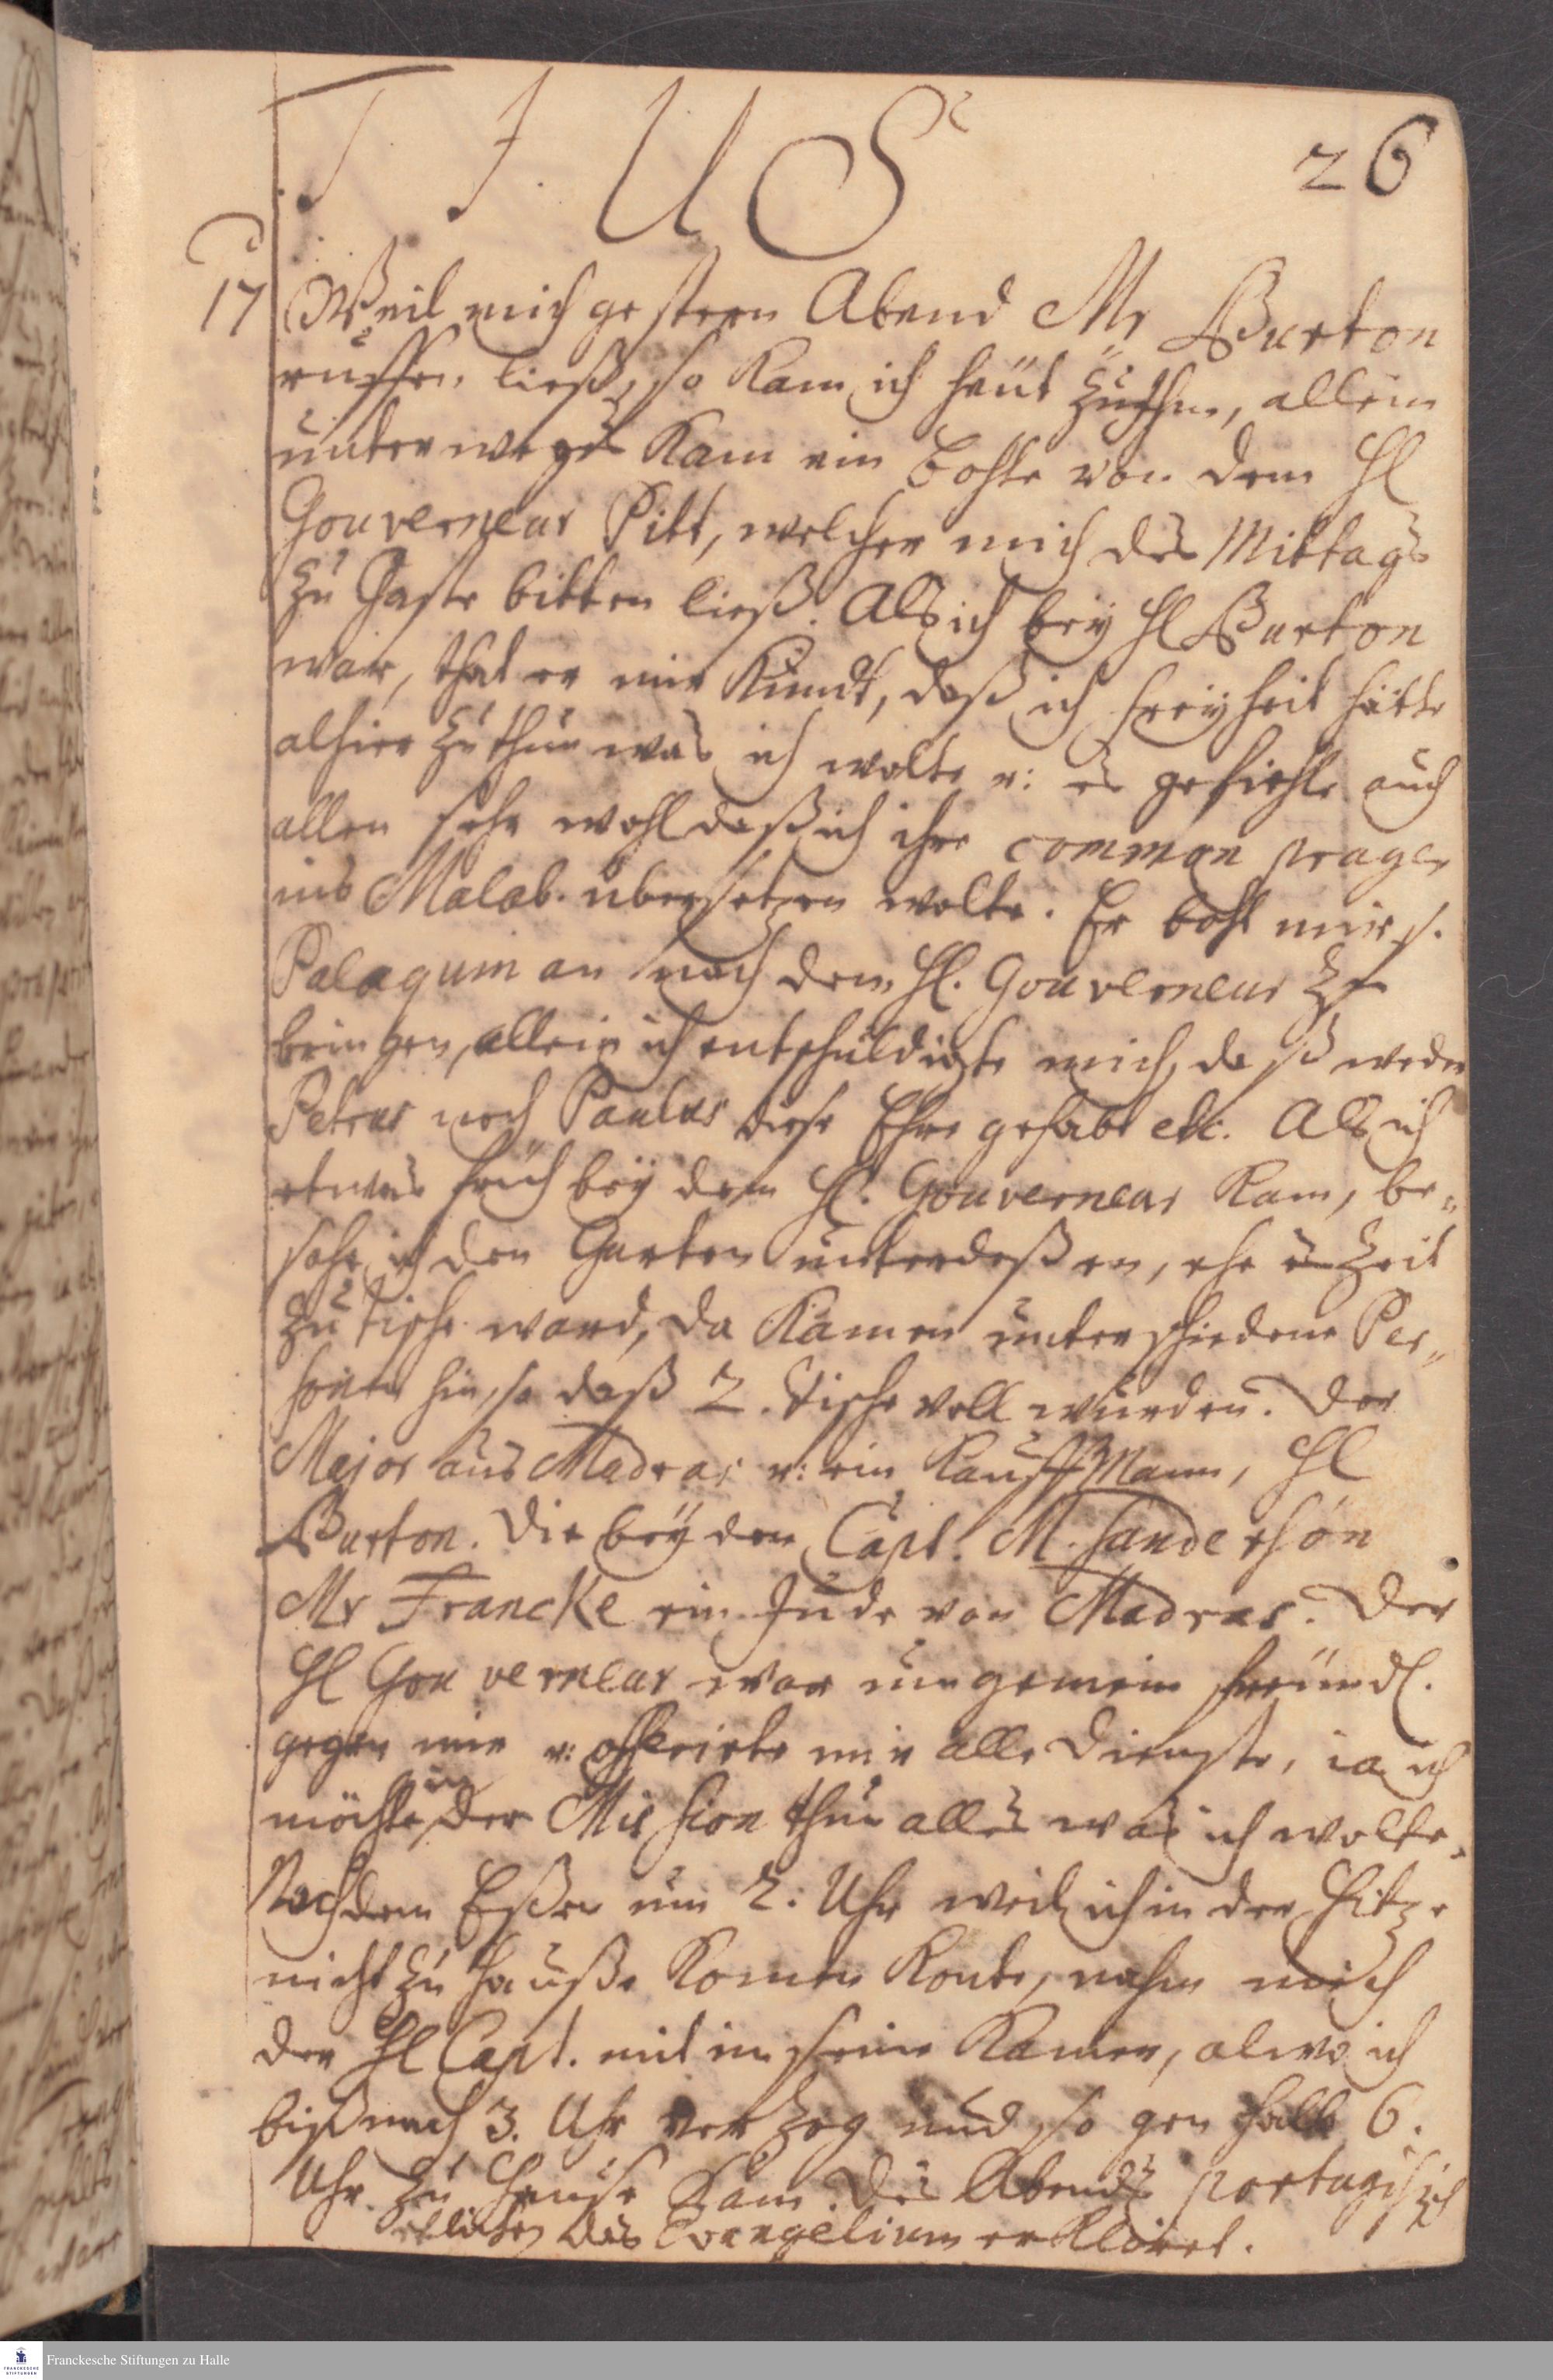 T I. U S
26
17 Weil mich gestern Abend Mr Burton
ruffen ließ, so kam ich heüt zu ihm, allein
unterwegs kam ein Bohte von dem Hl
Gouverneur Pitt, welcher mich des Mittags
zu Gaste bitten ließ. Als ich bey Hl Burton
war, that er mir Kundt, daß ich freyheit hätte
alhier zu thun was ich wolte u: es gefiehle auch
allen sehr wohl daß ich ihre common prayer
ins Malab. übersetzen wolte. Er boht mir s.
Palaquin an nach dem Hl. Gouverneur zu
bringen, allein ich entschuldigte mich, daß weder
Petrus noch Paulus diese Ehre gehabt etc. Als ich
etwas früh bey dem Hl. Gouverneur kam, be„
sahe ich den Garten unterdeßen, ehe es Zeit
zu Tische ward, da kamen unterschiedene Per„
sonen hin, so daß 2. Tische voll wurden. Der
Major aus Madras u: ein KauffMann, Hl
Burton. Die beyden Capt. M. Sandersön
Mr Francke ein Jude von Madras. Der
Hl Gouverneur war ungemein freündl.
gegen mir u: offerirte mir alle Dienste, ia ich
möchte in der Mission thun alles was ich wolte.
Nach dem Eßen um 2. Uhr weil ich in der Hitze
nicht zu Hauße komen konte, nahm mich
der Hl Capt. mit in seine Kamer, alwo ich
biß nach 3. Uhr verzog und so gen halb 6.
Uhr zu Hause kam. Des Abends portugisch
etlichen das Evangelium erkläret.
Franckesche Stiftungen zu Halle